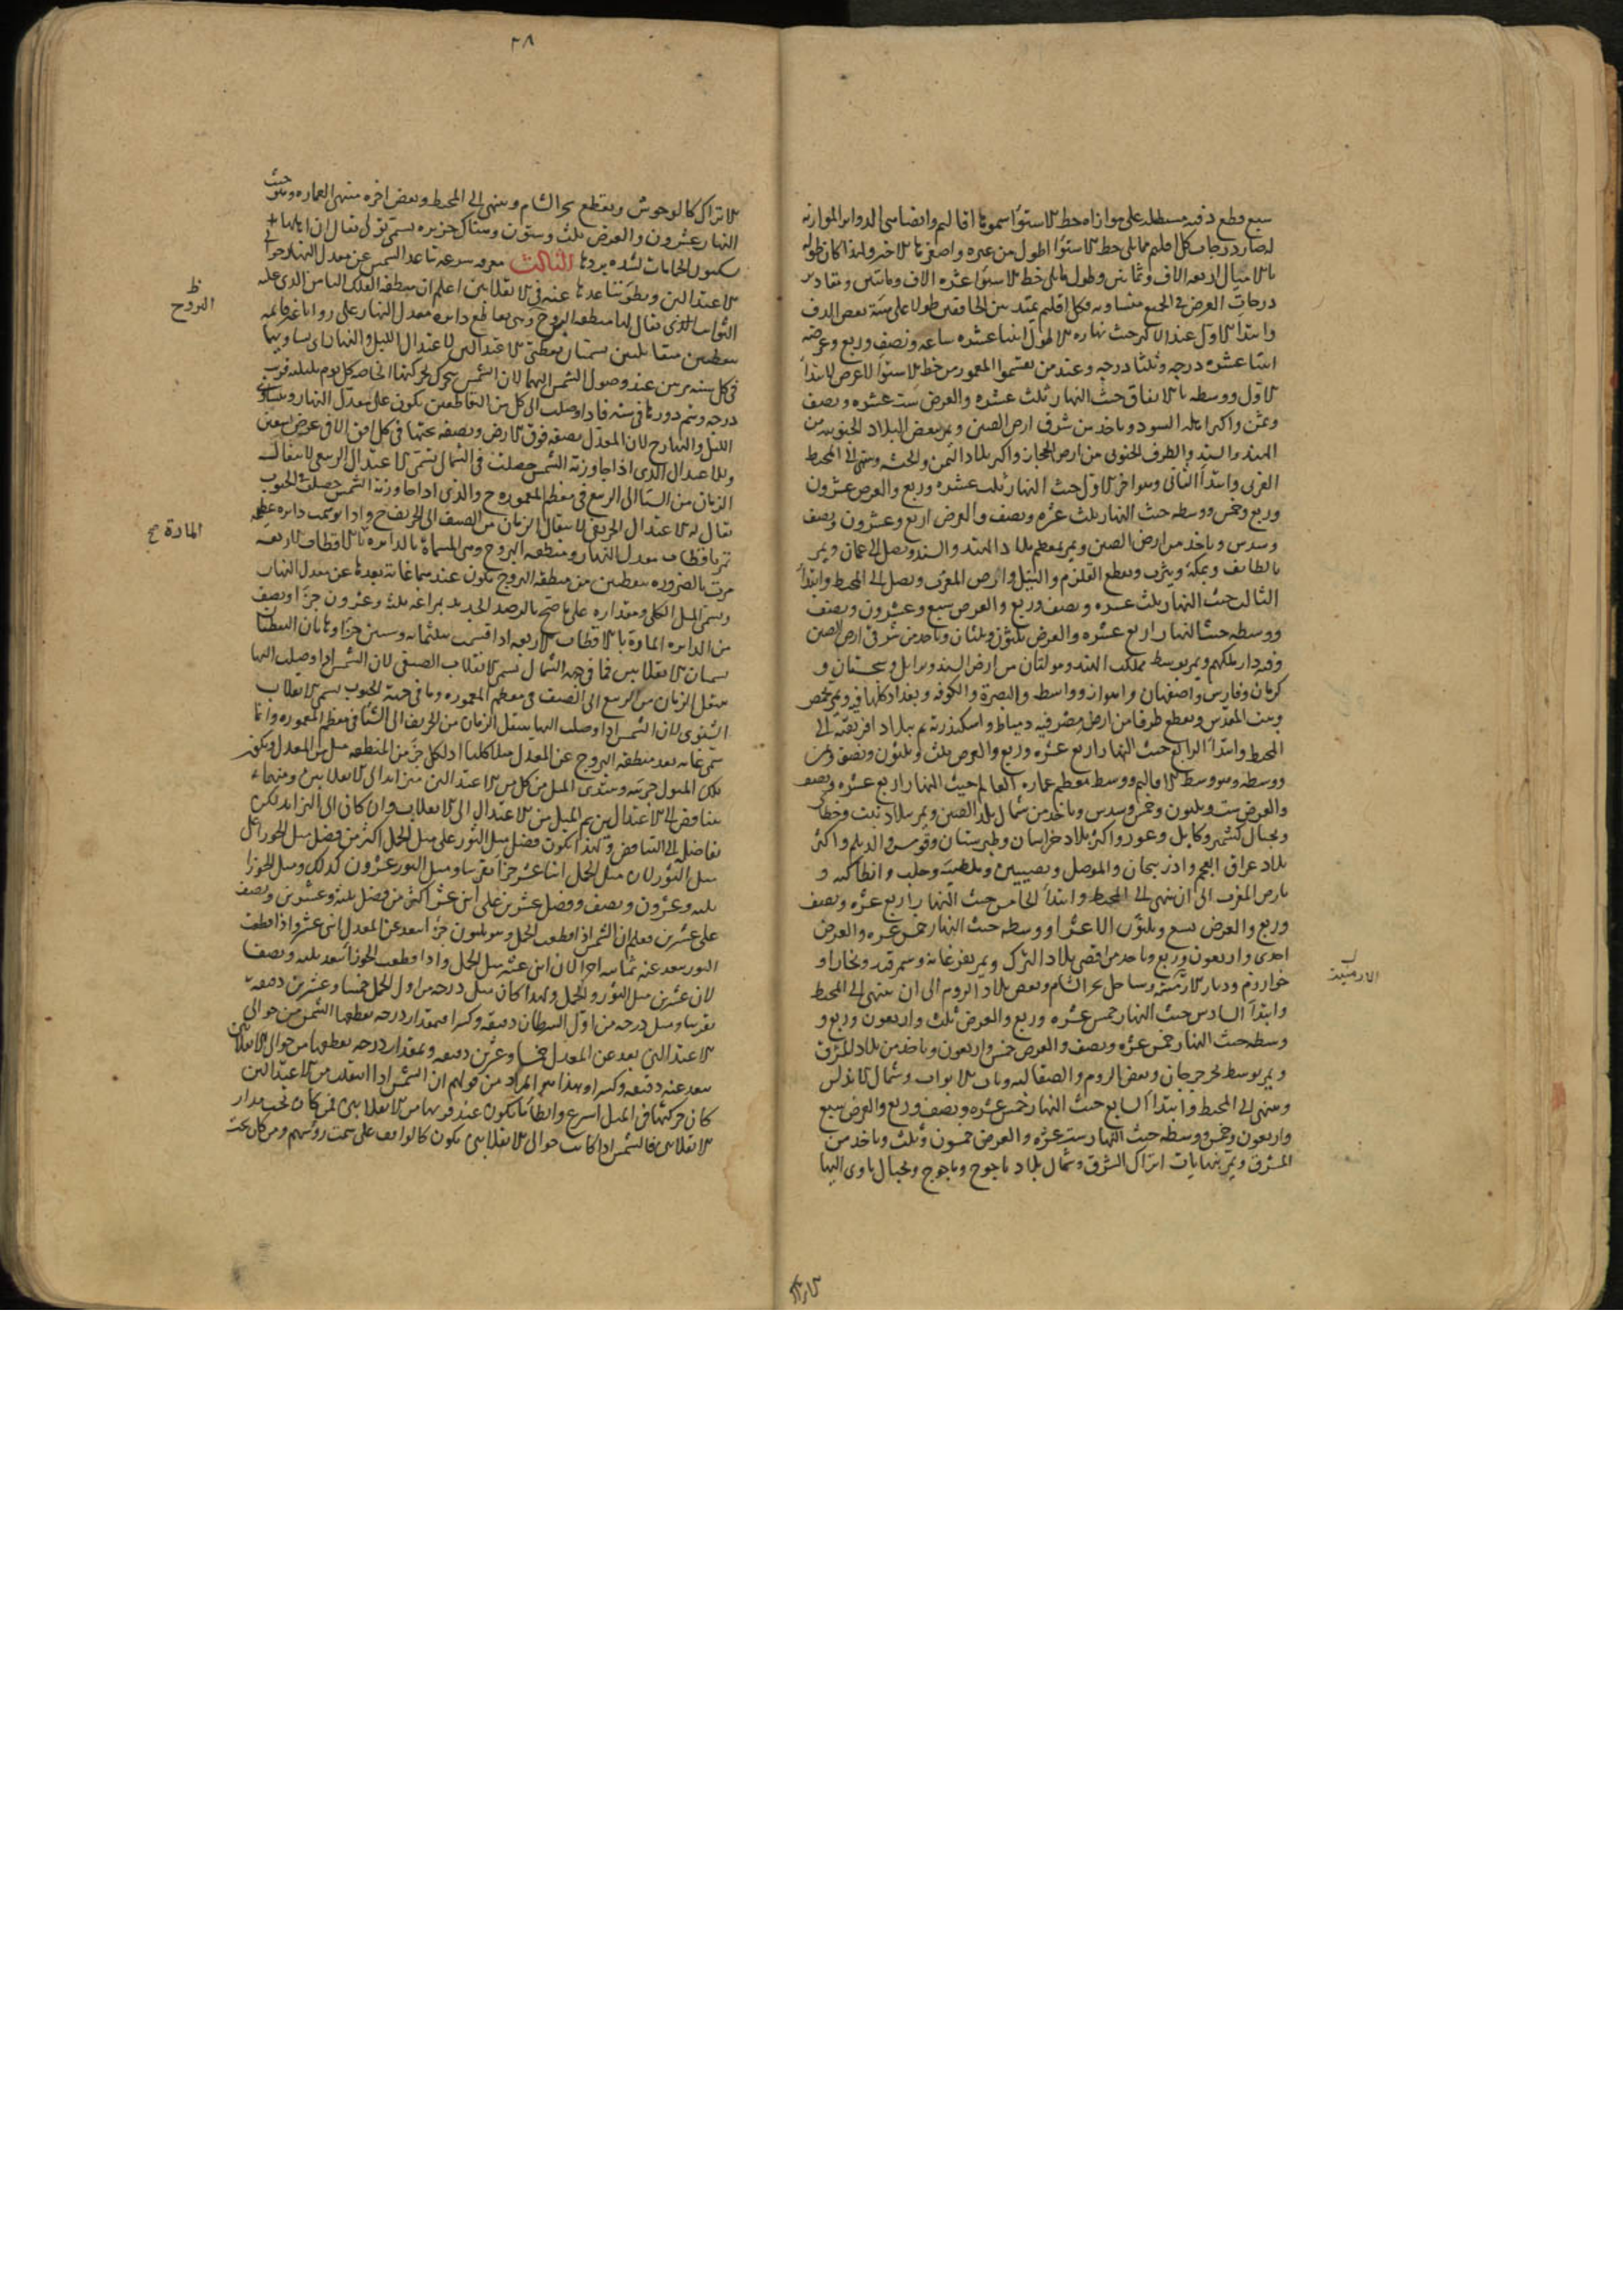 سبع قطع دقيقة مستطيلة على موازاة خط الاستواء سموها اقاليم وايضا سمى الدوائر الموازية
له صار درجات كل اقليم مما يلى خط الاستواء اطول من غيره واصغر ما الاخر ولهذا كان طوله
بالاميال اربعة الاف وثمانين وطول ما يلى خط الاستواء عشره الاف ومائتين ومقادير
درجات العرض فى الجميع متساوية وكل اقليم يمتد بين الخافقين طولا على هيئة بعض الدف
وابتدا الاول عند الاكثر حيث نهاره الاطول اثنتا عشره ساعه ونصف وربع وعرضه
اثنتا عشره درجه وثلثا درجه وعند من يقسموا المعمور من خط الاستواء العرض الابتدا
الاول ووسطه بالاتفاق حيث النهار ثلث عشره والعرض ست عشره ونصف
وثمن واكثر اهله السود وياخذ من شرقى ارض الصين ويمر ببعض البلاد الجنوبيه من
الهند والسند والطرف الجنوبى من ارض الحجاز واكثر بلاد اليمن والحبشه وينتهى الى المحيط
الغربى وابتدأ الثانى وهو اخر الاول حيث النهار ثلث عشره وربع والعرض عشرون
وربع وخمس ووسطه حيث النهار ثلث عشره ونصف والعرض اربع وعشرون ونصف
وسدس وياخذ من ارض الصين ويمر بمعظم بلاد الهند والسند ويصل الى عمان ويمر
بالطايف وبمكة ويثرب ويقطع القلزم والنيل وارض المغرب ويصل الى المحيط وابتدأ
الثالث حيث النهار ثلث عشره ونصف وربع والعرض سبع وعشرون ونصف
ووسطه حيث النهار اربع عشره والعرض ثلثون وثلثان وياخذ من شرقى ارض الصين
وفيه دار ملكهم ويمر بوسط مملكت الهند ومولتان من ارض السند وبزابل وسجستان و
كرمان وفارس واصفهان واهواز وواسط والبصرة والكوفة وبغداد كلها فيه ويمر بحمص
وبيت المقدس ويقطع طرفا من ارض مصر فيه دمياط واسكندرية ثم ببلاد افريقية الى
المحيط وابتدأ الرابع حيث النهار اربع عشره وربع والعرض ثلث وثلثون ونصف وثمن
ووسطه وهو وسط الاقاليم ووسط معظم عمارة العالم حيث النهار اربع عشره ونصف
والعرض ست وثلثون وخمس وسدس وياخذ من شمال بلد الصين ويمر ببلاد تبت وخطا
وبجبال كشمير وكابل وغور واكثر بلاد خراسان وطبرستان وقومس والديلم واكثر
بلاد عراق العجم واذربيجان والموصل ونصيبين وملطية وحلب وانطاكيه و
بارض المغرب الى ان ينتهى الى المحيط وابتدأ الخامس حيث النهار اربع عشره ونصف
وربع والعرض تسع وثلثون الا عشرا ووسطه حيث النهار خمس عشره والعرض
احدى واربعون وربع وياخذ من اقصى بلاد الترك ويمر بفرغانة وسمرقند وبخارا و
خوارزم وديار الارمنيه وساحل بحر الشام وبعض بلاد الروم الى ان ينتهى الى المحيط
وابتدأ السادس حيث النهار خمس عشره وربع والعرض ثلث واربعون وربع و
وسطه حيث النهار خمس عشره ونصف والعرض خمس واربعون وياخذ من بلاد المشرق
ويمر بوسط بحر جرجان وبعض الروم والصقالبه وباب الابواب وشمال الاندلس
وينتهى الى المحيط وابتدأ السابع حيث النهار خمس عشره ونصف وربع والعرض سبع
واربعون وخمس ووسطه حيث النهار ست عشره والعرض خمسون وثلث وياخذ من
المشرق ويمر بنهايات اتراك الشرق وشمال بلاد ياجوج وماجوج وبجبال ياوى اليها
الارمنية
٣٨
الاتراك كالوحوش ويقطع بحر الشام وينتهى الى المحيط وبعض اخره منتهى العماره وهو حيث
النهار عشرون والعرض ثلث وستون وهناك جزيره تسمى تولى يقال ان اهلها
يسكنون الحمامات لشده بردها الثالث معرفه سرعه تباعد الشمس عن معدل النهار حوالى
الاعتدالين وبطؤ تباعدها عنه فى الانقلابين اعلم ان منطقة الفلك الثامن الذى عليه
الثوابت الذى يقال لها منطقة البروج وهى تقاطع دائره معدل النهار على زوايا غير قائمه
بنقطتين متقابلتين يسميان بنقطتى الاعتدالين لاعتدال الليل والنهار اى تساويهما
فى كل سنه مرتين عند وصول الشمس اليهما لان الشمس يتحرك بحركتها الخاصه كل يوم بليلته قريب
درجه ويتم دورها فى سنه فاذا وصلت الى كل من التقاطعين يكون على معدل النهار ويتساوى
الليل والنهار ح لان المعدل نصفه فوق الارض ونصفه تحتها فى كل افق الا فى عرض تسعين
والاعتدال الذى اذا جاوزته الشمس حصلت فى الشمال تسمى الاعتدال الربيعى لانتقال
الزمان من الشتا الى الربيع فى معظم المعموره ح والذى اذا جاوزته الشمس حصلت فى الجنوب
يقال له الاعتدال الخريفى لانتقال الزمان من الصيف الى الخريف ح واذا توهمت دايره عظيمه
تمر باقطاب معدل النهار ومنطقه البروج وهى المسماة بالدايره بالاقطاب الاربعه
مرت بالضروره بنقطتين من منطقه البروج يكون عندهما غاية بعدها عن معدل النهار
ويسمى الميل الكلى ومقداره على ما صح بالرصد الجديد بمراغه ثلث وعشرون جزءا ونصف
من الدايره المارة بالاقطاب الاربعه اذا قسمت بثلثمائه وستين جزءا وهاتان النقطتان
يسميان الانقلابين فما فى جهة الشمال يسمى الانقلاب الصيفى لان الشمس اذا وصلت اليها
ينتقل الزمان من الربيع الى الصيف فى معظم المعموره وما فى جهة الجنوب يسمى الانقلاب
الشتوى لان الشمس اذا وصلت اليها ينتقل الزمان من الخريف الى الشتا فى معظم المعموره وانما
سمى غاية بعد منطقه البروج عن المعدل ميلا كليا اذ لكل جزء من المنطقه ميل من المعدل ويكون
تلك الميول جزئية ويبتدى الميل من كل من الاعتدالين متزايدا الى الانقلابين ومنهما
متناقصا الى الاعتدالين ثم الميل من الاعتدال الى الانقلاب وان كان الى التزايد لكن
تفاضله الى التناقص ولهذا يكون فضل ميل الثور على ميل الحمل اكثر من فضل ميل الجوزا على
ميل الثور لان ميل الحمل اثنا عشر جزءا تقريبا وميل الثور عشرون كذلك وميل الجوزا
ثلثه وعشرون ونصف وفضل عشرين على اثنى عشر اكثر من فضل ثلثة وعشرين ونصف
على عشرين فعلم ان الشمس اذا قطعت الحمل وهو ثلثون جزءا ابتعد عن المعدل اثنى عشر واذا قطعت
الثور بعد عنه ثمانيه اجزا لان اثنى عشر ميل الحمل واذا قطعت الجوزا تبعد ثلثه ونصفا
لان عشرين ميل الثور والحمل ولهذا كان ميل درجه من اول الحمل خمسا وعشرين دقيقه
تقريبا وميل درجه من اول السرطان دقيقه وكسرا فبمقدار درجه يقطعها الشمس من حوالى
الاعتدالين يبعد عن المعدل خمسا وعشرين دقيقه وبمقدار درجه يقطعها من حوالى الانقلابين
يبعد عنه دقيقه وكسرا وهذا هو المراد من قولهم ان الشمس اذا انتقلت من الاعتدالين
كان حركتها فى الميل اسرع وابطا ما يكون عند قربها من الانقلابين فمن كان تحت مدار
الانقلابين فالشمس اذا كانت حوالى الانقلابين يكون كالواقف على سمت رؤسهم ومن كان تحته
البروج
المادة صح